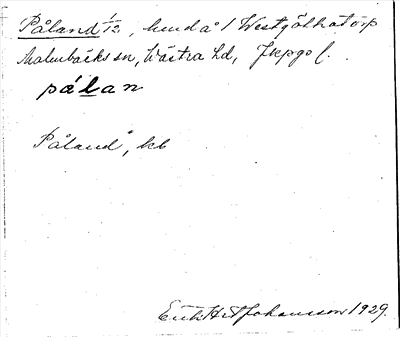 Påland 1/12, hmd å 1 Westgölhatorp
Malmbäcks sn, Västra hd, Jkpgs l.
pálan
Påland, kb
Erik H:t Johansson 1929.